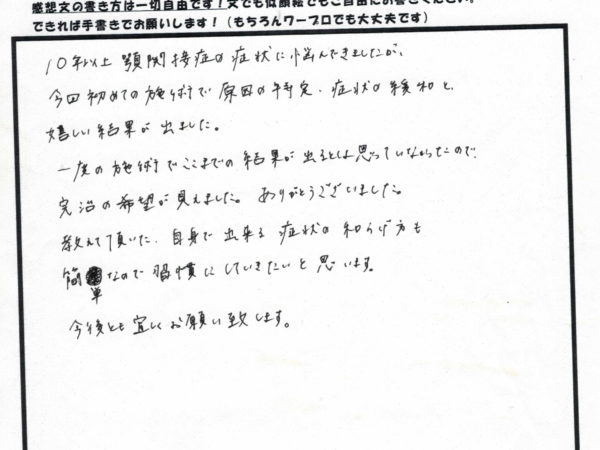 感想文の書き方は一切自由です！文でも似顔絵でもご自由にお書きください。
できれば手書きでお願いします！（もちろんワープロでも大丈夫です）
10年以上 顎関接症の症状に悩んできましたが、
今回初めての施術で原因の特定、症状の緩和と、
嬉しい結果が出ました。
一度の施術でここまでの結果が出るとは思っていなかったので、
完治の希望が見えました。ありがとうございました。
教えて頂いた、自身で出来る症状の和らげ方も
簡単なので習慣にしていきたいと思います。
今後とも宜しくお願い致します。